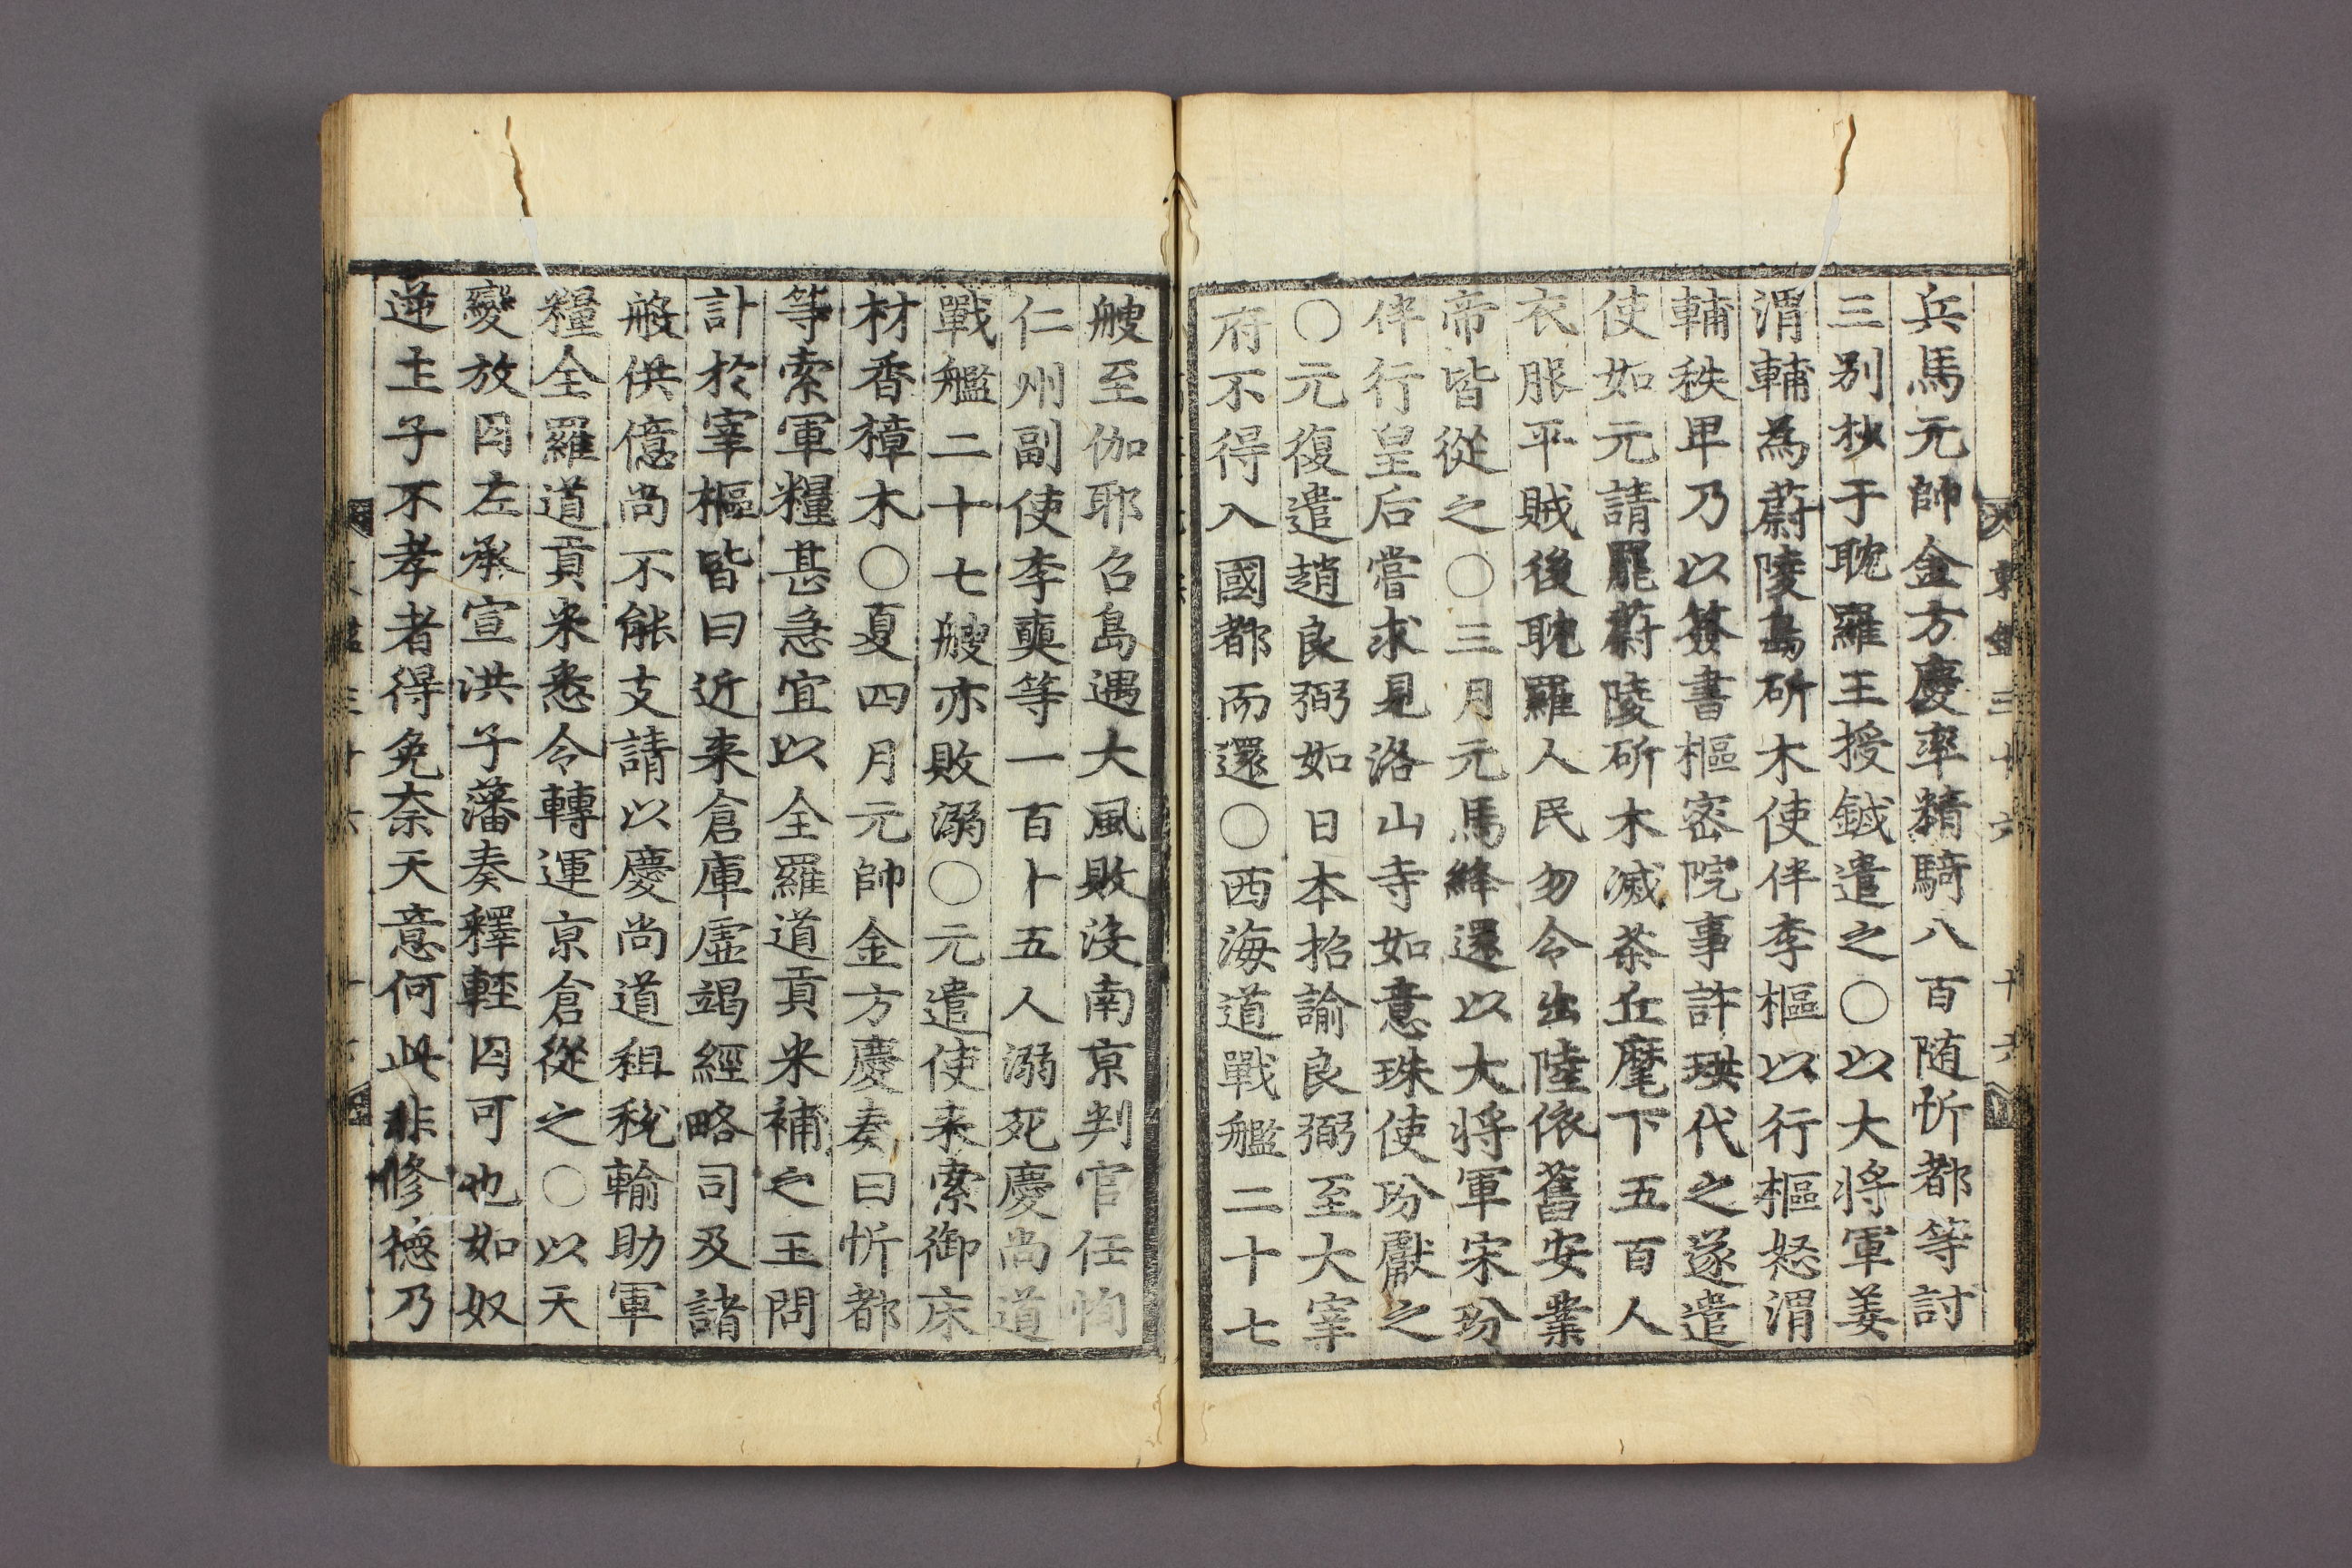 兵馬元帥金方慶率精騎八百随忻都等討
三別抄于耽羅王授鉞遣之○以大將軍姜
渭輔為蔚陵島斫木使伴李樞以行樞怒渭
輔秩卑乃以簽書樞密院事許珙代之遂遣
使如元請罷蔚陵斫木減茶丘麾下五百人
衣服平賊後耽羅人民勿令出陸依舊安業
帝皆從之○三月元馬絳還以大將軍宋玢
伴行皇后嘗求見洛山寺如意珠使玢獻之
○元復遣趙良弼如日本招諭良弼至大宰
府不得入國都而還○西海道戰艦二十七
艘至伽耶召島遇大風敗沒南京判官任恂
仁州副使李奭等一百卜五人溺死慶尚道
戰艦二十七艘亦敗溺○元遣使来索御床
材香樟木○夏四月元帥金方慶奏曰忻都
等索軍糧甚急宜以全羅道貢米補之王問
計於宰樞皆曰近来倉庫虛竭經略司及諸
般供億尚不能支請以慶尚道租稅輸助軍
糧全羅道貢米悉令轉運京倉從之○以天
變放囚左承宣洪子藩奏釋輕囚可也如奴
逆主子不孝者得免奈天意何此非修德乃
東鑑三十六 十六